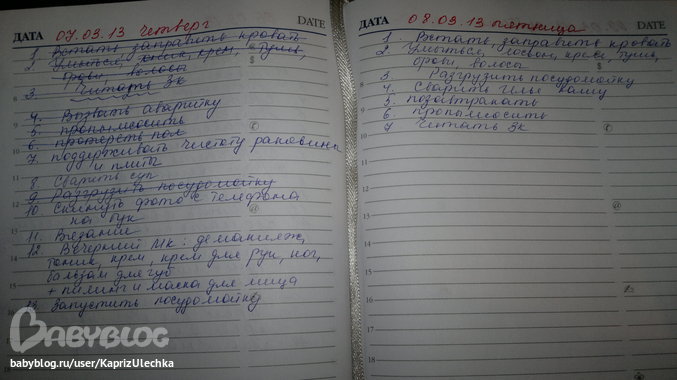 ДАТА 07.03.13 четверг DATE
1. Встать заправить кровать
2. Умыться, лосьон, крем, тушь,
брови, волосы
3. Читать ЗК
4. Вызвать аварийку
5. пропылесосить
6. протереть пол
7. поддерживать чистоту раковины
и плиты
8. Сварить суп
9. Разгрузить посудомойку
10. Скинуть фото с телефона
на бук
11. Вязание
12. Вечерний мк: демакияж,
тоник, крем, крем для рук, ног,
бальзам для губ
+ пилинг и маска для лица
13. Запустить посудомойку
ДАТА 08.03.13 пятница DATE
1. Встать, заправить кровать
2. Умыться, лосьон, крем, тушь,
брови, волосы
3. Разгрузить посудомойку
4. Сварить Илье кашу
5. позавтракать
6. пропылесосить
7 Читать ЗК
BABYBLOG
babyblog.ru/user/KaprizUlechka